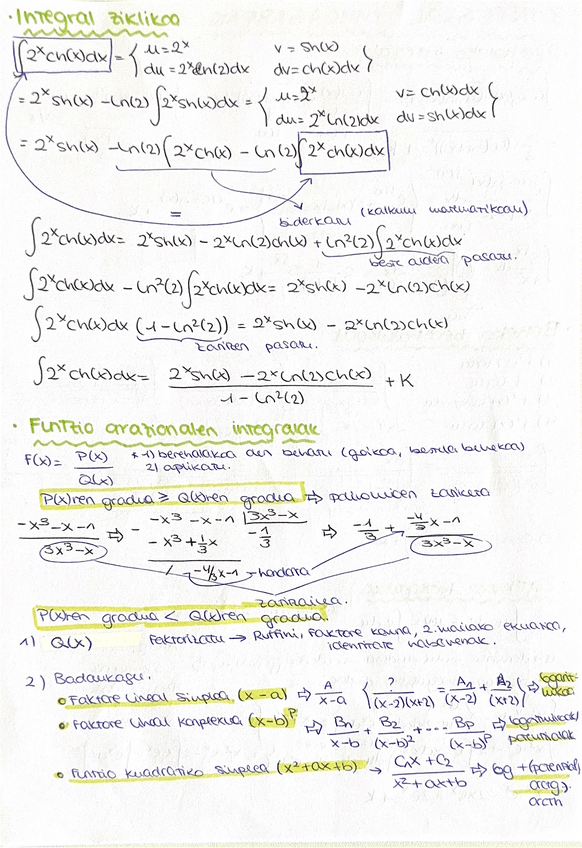 · Integral ziklikoa
∫2ˣch(x)dx = { u = 2ˣ   v = sh(x)
du = 2ˣln(2)dx   dv = ch(x)dx }
= 2ˣsh(x) - ln(2) ∫2ˣsh(x)dx = { u = 2ˣ   v = ch(x)dx
du = 2ˣln(2)dx   dv = sh(x)dx }
= 2ˣsh(x) - ln(2) (2ˣch(x) - ln(2) ∫2ˣch(x)dx
=
biderkatu (kalkulu matematikoan)
∫2ˣch(x)dx = 2ˣsh(x) - 2ˣln(2)ch(x) + ln²(2) ∫2ˣch(x)dx
beste aldera pasatu.
∫2ˣch(x)dx - ln²(2) ∫2ˣch(x)dx = 2ˣsh(x) - 2ˣln(2)ch(x)
∫2ˣch(x)dx (1 - ln²(2)) = 2ˣsh(x) - 2ˣln(2)ch(x)
zatitzen pasatu.
∫2ˣch(x)dx = (2ˣsh(x) - 2ˣln(2)ch(x)) / (1 - ln²(2)) + K
· Funtzio arrazionalen integralak
F(x) = P(x) / Q(x)   * 1) berehalakoa den behatu (goikoa, behekoa)
2) aplikatu.
P(x)ren gradua ≥ Q(x)ren gradua ⇒ polinomioen zatiketa
(-x³-x-1) / (3x³-x) ⇒ - -x³ -x -1 | 3x³-x ⇒ -1/3 + (-4/3 x-1) / (3x³-x)
-x³ + 1/3 x   -1/3
/ -4/3x-1 → hondarra
zatitzailea.
P(x)ren gradua < Q(x)ren gradua.
1) Q(x)   faktorizatu → Ruffini, faktore komuna, 2. mailako ekuazioa,
identitate nabarmenak.
2) Badaukagu.
• Faktore lineal sinplea (x-a) ⇒ A / (x-a)   { ? / (x-2)(x+2) = A₁ / (x-2) + A₂ / (x+2) } ⇒ logarit-
mikoa
• Faktore lineal konplexua (x-b)ᵖ ⇒ B₁ / (x-b) + B₂ / (x-b)² + ---- Bₚ / (x-b)ᵖ ⇒ logaritmikoak/
potentzialak
• Funtzio kuadratiko sinplea (x²+ax+b) → (C₁x + C₂) / (x²+ax+b) ⇒ log + (potentzial)
arctg).
arcth